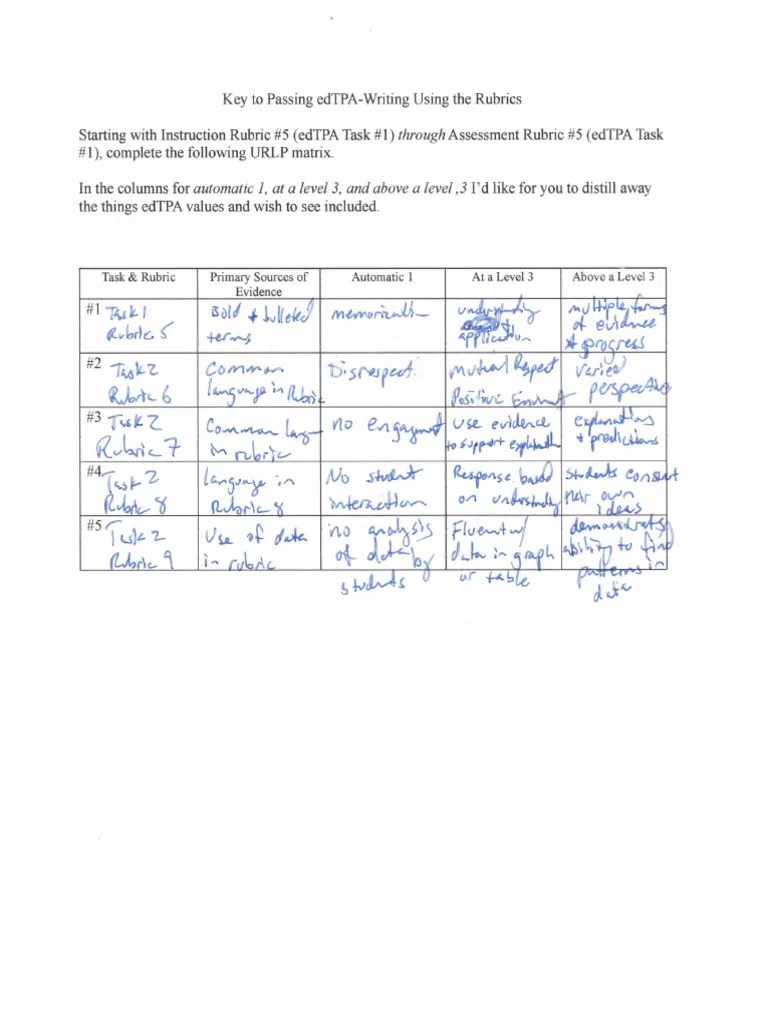 Key to Passing edTPA-Writing Using the Rubrics
Starting with Instruction Rubric #5 (edTPA Task #1) through Assessment Rubric #5 (edTPA Task
#1), complete the following URLP matrix.
In the columns for automatic 1, at a level 3, and above a level ,3 I'd like for you to distill away
the things edTPA values and wish to see included.
Task & Rubric
Primary Sources of
Evidence
Automatic 1
At a Level 3
Above a Level 3
#1 Task 1
Rubric 5
Bold + bulleted
terms
understanding
application
multiple forms
of evidence
progress
#2 Task 2
Rubric 6
Common
language in Rubric
Disrespect
Mutual Respect
Positive
varied
perspective
#3 Task 2
Rubric 7
Common lang
in rubric
no engagement
use evidence
to support
explanations
+ predictions
#4 Task 2
Rubric 8
language in
Rubric 8
No student
interaction
Response based
on understanding
Students
their own
ideas
#5 Task 2
Rubric 9
Use of data
in rubric
no analysis
of data by
students
Fluent w/
data in graph
or table
demonstrates
ability to find
patterns in
data